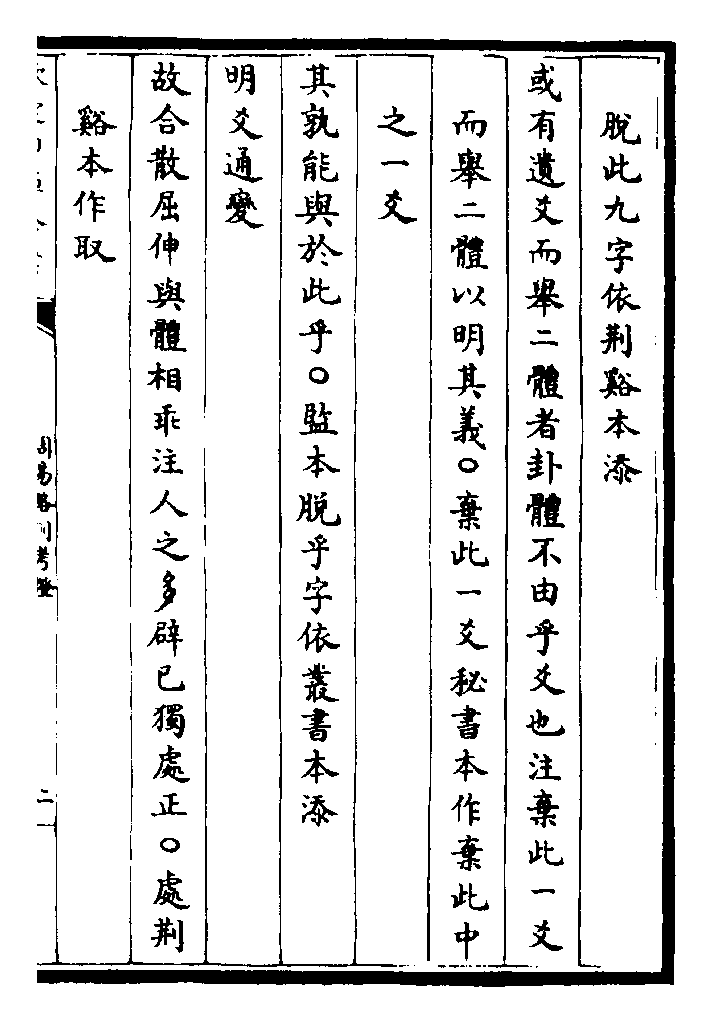 脫此九字依荆谿本添
或有遺爻而舉二體者卦體不由乎爻也注棄此一爻
而舉二體以明其義○棄此一爻秘書本作棄此中
之一爻
其孰能與於此乎○監本脫乎字依叢書本添
明爻通變
故合散屈伸與體相乖注人之多辟已獨處正○處荆
谿本作取
周易略例考證
二